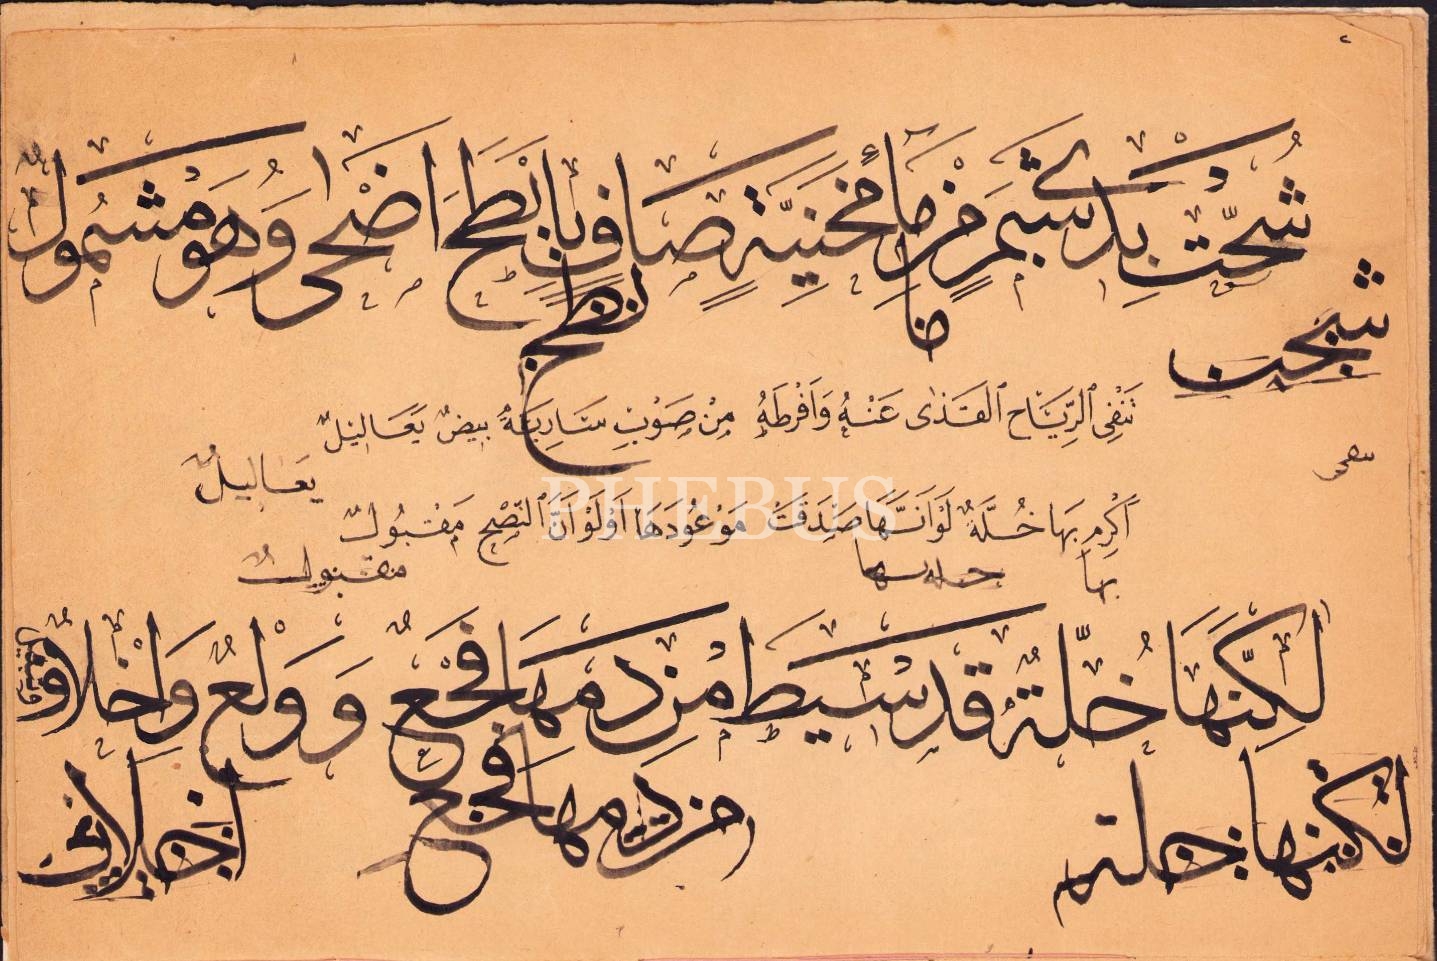 شُجَّتْ بِذِي شَبَمٍ مِنْ مَاءِ مَحْنِيَةٍ صَافٍ بِأَبْطَحَ أَضْحَى وَهُوَ مَشْمُولٌ
شجت
ما
بطح
تَنْفِى ٱلرِّيَاحُ ٱلْقَذٰى عَنْهُ وَاَفْرَطَهُ مِنْ صَوْبِ سَارِيَةٍ بِيضٌ يَعَالِيلٌ
يَعَالِيلٌ
تنفى
اَكْرِمْ بِهَا خُلَّةً لَوْ اَنَّهَا صَدَقَتْ مَوْعُودَهَا اَوْ لَوْ اَنَّ ٱلنُّصْحَ مَقْبُولٌ
بها خلة نها مقبول
لَكِنَّهَا خُلَّةٌ قَدْ سِيطَ مِنْ دَمِهَا فَجْعٌ وَوَلْعٌ وَاِخْلَافٌ وتبديل
لكنها خلة من دمها فجع اخلاف
PHEBUS